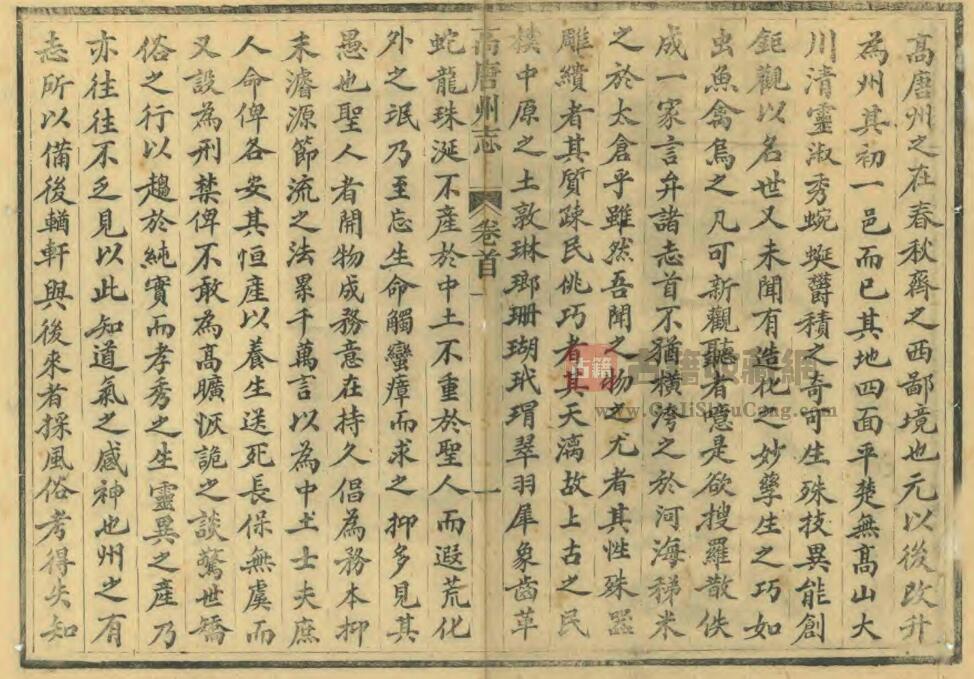 高唐州之在春秋齊之西鄙境也元以後改升
為州其初一邑而已其地四面平楚無高山大
川清靈淑秀蜿蜒欝積之奇可生殊技異能創
鉅觀以名世又未聞有造化之妙孳生之巧如
出魚禽鳥之凡可新觀聽者意是欲搜羅散佚
成一家言弁諸志首不猶橫洿之於河海稊米
之於太倉乎雖然吾聞之物之尤者其性殊器
雕繢者其質疎民佻巧者其天漓故上古之民
樸中原之土敦琳瑯珊瑚玳瑁翠羽犀象齒革
高唐州志
卷首
一
蛇龍珠涎不產於中土不重於聖人而遐荒化
外之珉乃至忘生命觸蠻瘴而求之抑多見其
愚也聖人者開物成務意在持久倡為務本抑
末濬源節流之法累千萬言以為中土士夫庶
人命俾各安其恒産以養生送死長保無虞而
又設為刑禁俾不敢為高曠恢詭之談驚世矯
俗之行以趨於純實而孝秀之生靈異之產乃
亦往往不乏見以此知道氣之感神也州之有
志所以備後輶軒與後來者採風俗考得失知
古籍
古籍收藏網
www.GuJiShouCang.com